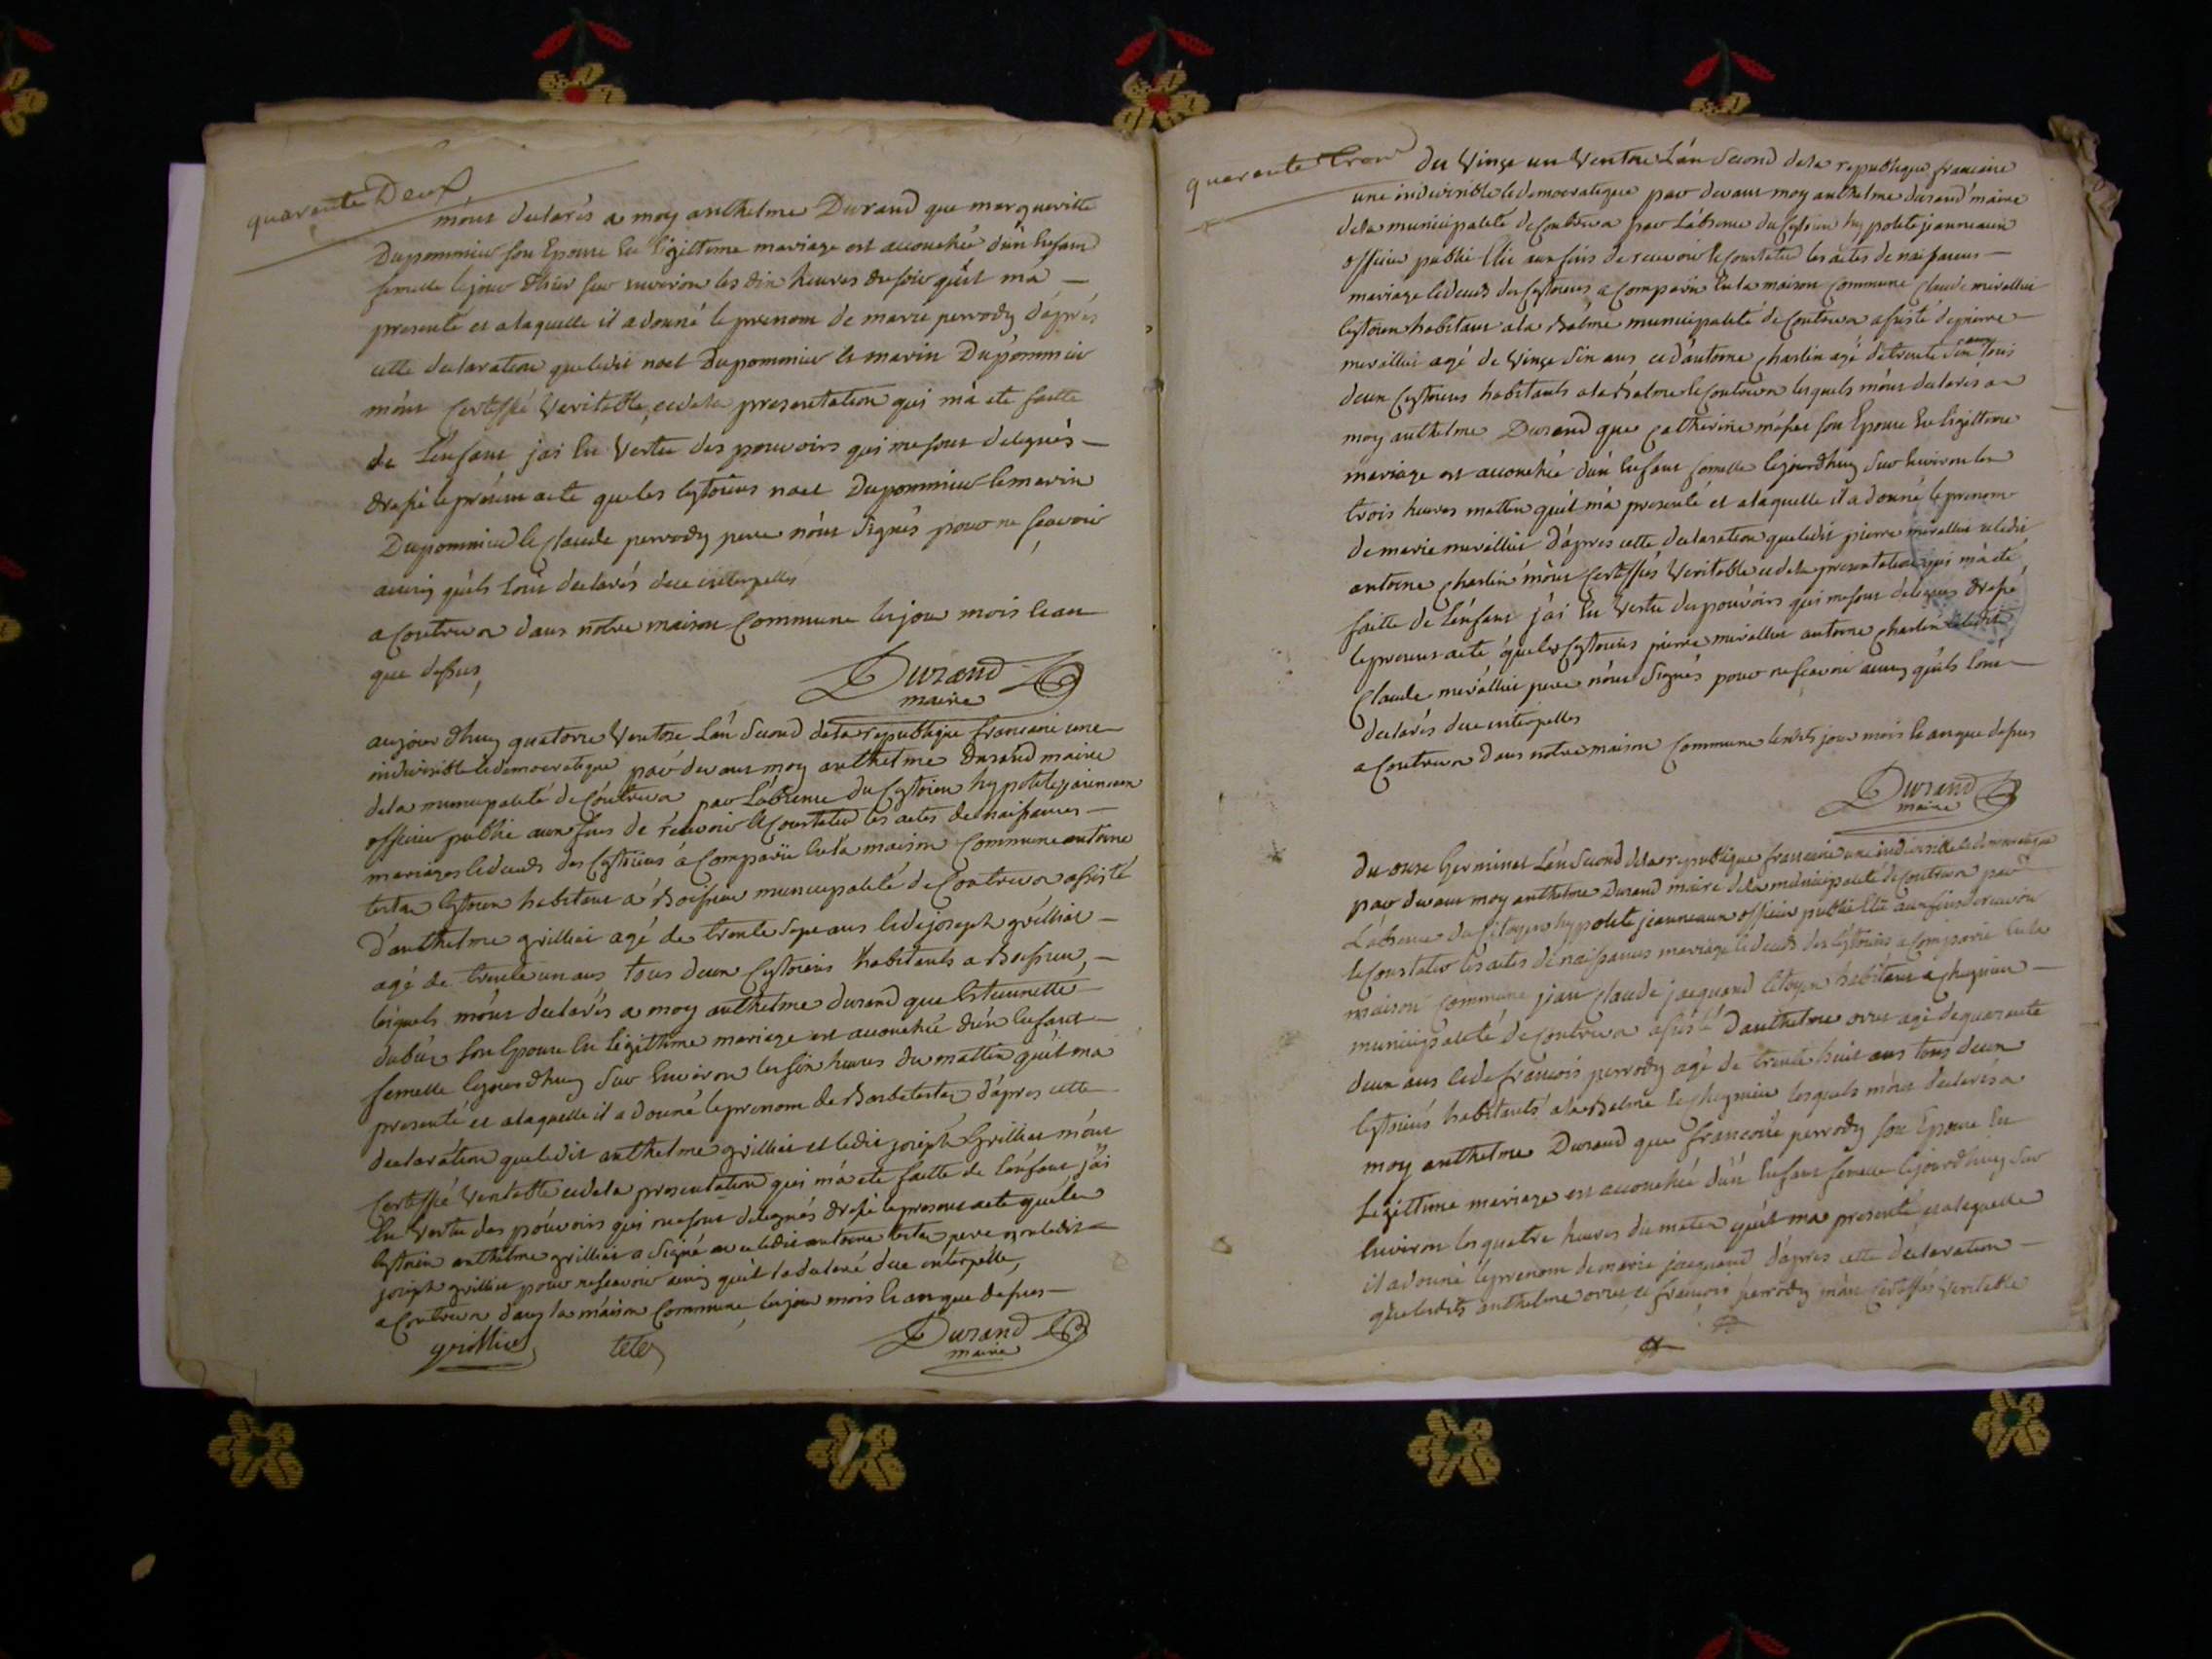 quarante Deux
m'ont declarés a moy anthelme Durand que margueritte
Dupommier son Epouse En ligittime mariage est accouchée d'ûn Enfant
femelle le jour d'hier sur environ les dix heures du soir qu'il m'a
presenté et a laquelle il a donné le prenom de marie perrody d'aprés
cette declaration que ledit noel Dupommier le marin Dupommier
m'ont Certiffié Veritable, et de la presentation qui m'a ete faitte
de L'enfant j'ai En Vertu des pouvoirs qui me sont delegués
drefsé le présent acte que les Cytoiens noel Dupommier le marin
Dupommier le Claude perrody pere n'ont Signés pour ne sçavoir
ainsy qu'ils l'ont declarés de ce interpellés
a Contrevoz dans notre maison Commune les jour mois le an
que defsus,
Durand
maire
aujourdhuy quatorze Ventose L'an Second de la republique francaise une
indivisible le democratique par devant moy anthelme Durand maire
de la municipalité de Contrevoz par L'absence du Cytoien hypolite jeanneaux
officier public aux fins de recevoir le Constater les actes de naifsances
mariages le deces des Cytoiens a Comparu En la maison Commune antoine
Cytoien habitant a Boifsieu municipalité de Contrevoz afsisté
D'anthelme grilliet agé de trente Sept ans le de joseph grilliet
agé de trente un ans tous deux Cytoiens habitants a Boifsieu,
lesquels m'ont declarés a moy anthelme durand que Estiennette
Son Epouse En Légittime mariage est accouchée d'ûn Enfant
femelle le jourdhuy Sur Environ les six heures du mattin qu'il ma
presenté et a laquelle il a donné le prenom de d'apres cette
declaration que ledit anthelme grilliet et ledit joseph Grilliet m'ont
Certiffié Veritable et de la presentation qui m'a ete faitte de L'enfant j'ai
En Vertu des pouvoirs qui me sont delegués drefsé le present acte que le
Cytoien anthelme grilliet a Signé ledit antoine pere ledit
joseph grilliet pour ne sçavoir ainsy qu'il l'a declaré de ce interpellé,
a Contrevoz dans la maison Commune, les jour mois le an que defsus
grilliet
Durand
maire
quarante trois
Du Vingt un Ventose L'an Second de la republique francaise
une indivisible le democratique par devant moy anthelme durand maire
de la municipalité de Contrevoz par L'absence du Cytoien hypolite jeanneaux
officier public Elu aux fins de recevoir le Constater les actes de naifsances
mariage le deces des Cytoiens a Comparu En la maison Commune Claude mirallier
Cytoien habitant a la Balme municipalité de Contrevoz afsisté de pierre
mirallier agé de Vingt Six ans et d'antoine Charlin agé de trente Six ans tous
deux Cytoiens habitants a la Balme le Contrevoz lesquels m'ont declarés a
moy anthelme Durand que Catherine son Epouse En ligittime
mariage est accouchée d'ûn Enfant femelle le jourdhuy Sur Environ les
trois heures mattin qu'il m'a presenté et a laquelle il a donné le prenom
de marie mirallier d'apres cette declaration que ledit pierre mirallier et ledit
antoine Charlin m'ont Certiffiés Veritable et de la presentation qui m'a eté
faitte de L'énfant j'ai En Vertu des pouvoirs qui me sont delegués drefsé
le present acte que les Cytoiens pierre mirallier antoine Charlin et ledit
Claude mirallier pere n'ont Signés pour ne sçavoir ainsy qu'ils l'ont
declarés de ce interpellés
a Contrevoz dans notre maison Commune lesdits jour mois le an que defsus
Durand
maire
du onze Germinal L'an Second de la republique francaise une indivisible le democratique
par devant moy anthelme Durand maire de la municipalité de Contrevoz par
L'absence du Citoyen hypolite jeanneaux officier public Elu aux fins de recevoir
le Constater les actes de naifsances mariage le deces des Cytoiens a Comparu En la
maison Commune jean Claude jacquand Citoyen habitant a Cheignieu
municipalité de Contrevoz afsisté D'anthelme agé de quarante
deux ans le de francois perrody agé de trente huit ans tous deux
Cytoiens habitants a la Balme le Cheignieu lesquels m'ont declarés a
moy anthelme Durand que francoise perrody son Epouse En
Légittime mariage est accouchée d'ûn Enfant femelle le jourdhuy Sur
Environ les quatre heures du matin qu'il ma presenté et a laquelle
il a donné le prenom de marie jacquand d'apres cette declaration
que lesdits anthelme et francois perrody m'ont Certiffiés Veritable